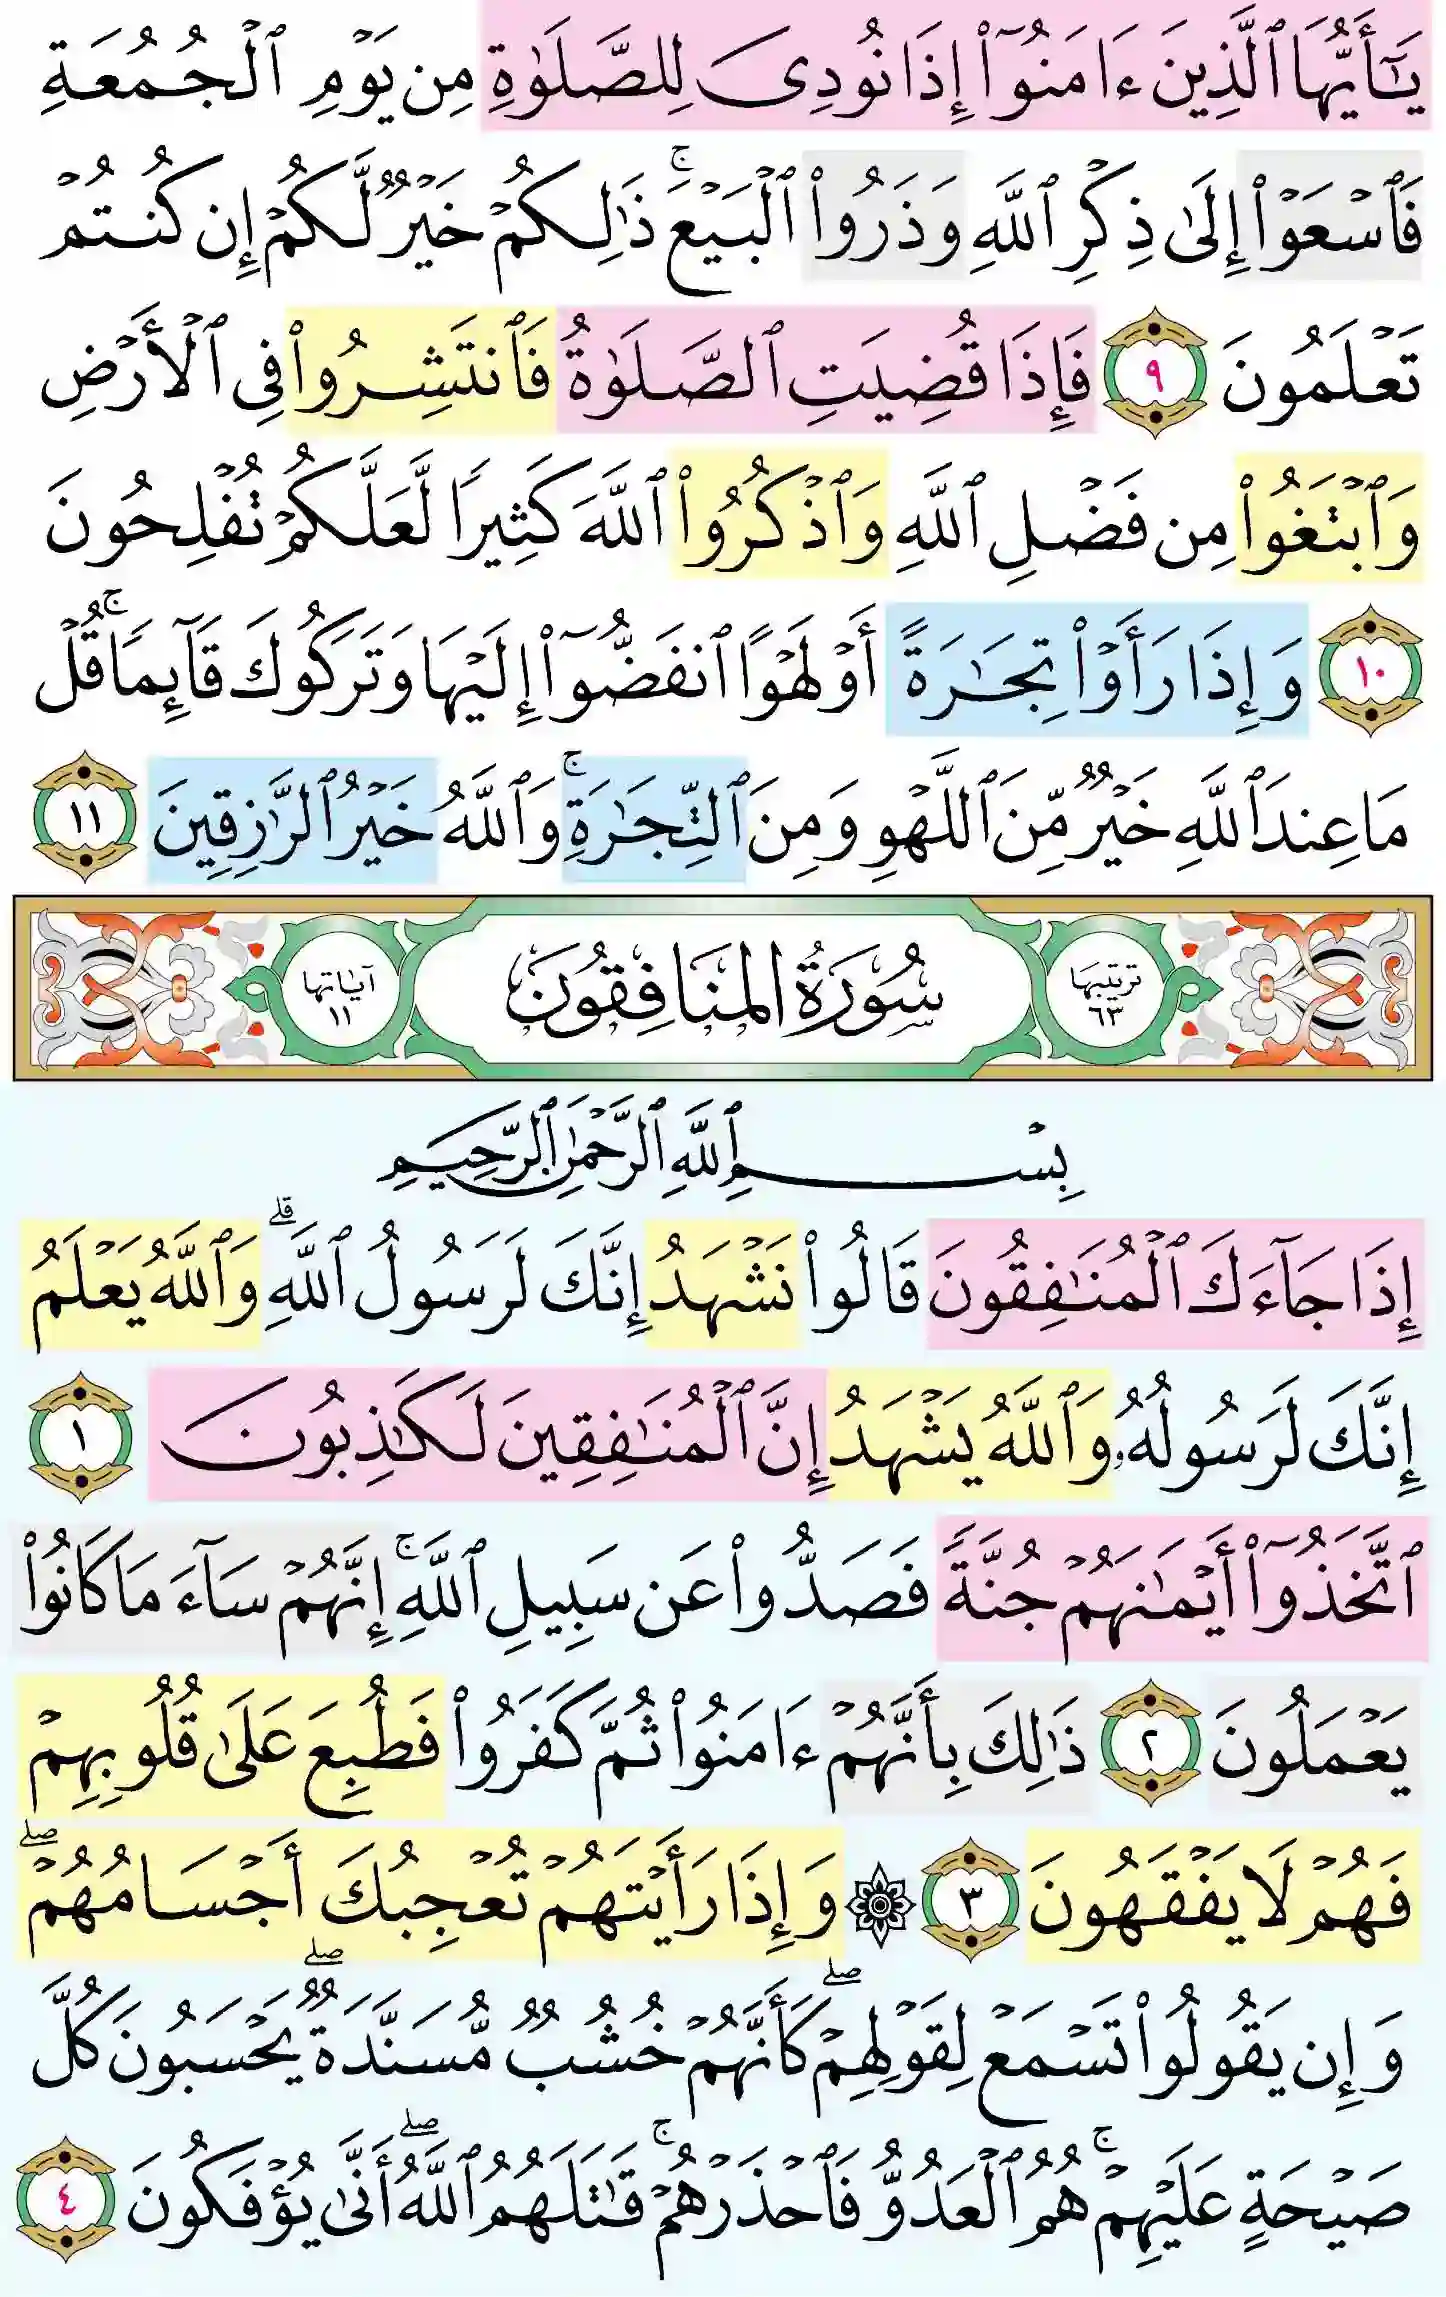 يَٰٓأَيُّهَا ٱلَّذِينَ ءَامَنُوٓا۟ إِذَا نُودِىَ لِلصَّلَوٰةِ مِن يَوْمِ ٱلْجُمُعَةِ
فَٱسْعَوْا۟ إِلَىٰ ذِكْرِ ٱللَّهِ وَذَرُوا۟ ٱلْبَيْعَ ۚ ذَٰلِكُمْ خَيْرٌ لَّكُمْ إِن كُنتُمْ
تَعْلَمُونَ ٩ فَإِذَا قُضِيَتِ ٱلصَّلَوٰةُ فَٱنتَشِرُوا۟ فِى ٱلْأَرْضِ
وَٱبْتَغُوا۟ مِن فَضْلِ ٱللَّهِ وَٱذْكُرُوا۟ ٱللَّهَ كَثِيرًا لَّعَلَّكُمْ تُفْلِحُونَ
١٠ وَإِذَا رَأَوْا۟ تِجَٰرَةً أَوْ لَهْوًا ٱنفَضُّوٓا۟ إِلَيْهَا وَتَرَكُوكَ قَآئِمًا ۚ قُلْ
مَا عِندَ ٱللَّهِ خَيْرٌ مِّنَ ٱللَّهْوِ وَمِنَ ٱلتِّجَٰرَةِ ۚ وَٱللَّهُ خَيْرُ ٱلرَّٰزِقِينَ ١١
ترتيبها ٦٣ سُورَةُ المنَافِقُون آياتها ١١
بِسْمِ ٱللَّهِ ٱلرَّحْمَٰنِ ٱلرَّحِيمِ
إِذَا جَآءَكَ ٱلْمُنَٰفِقُونَ قَالُوا۟ نَشْهَدُ إِنَّكَ لَرَسُولُ ٱللَّهِ ۗ وَٱللَّهُ يَعْلَمُ
إِنَّكَ لَرَسُولُهُۥ وَٱللَّهُ يَشْهَدُ إِنَّ ٱلْمُنَٰفِقِينَ لَكَٰذِبُونَ ١
ٱتَّخَذُوٓا۟ أَيْمَٰنَهُمْ جُنَّةً فَصَدُّوا۟ عَن سَبِيلِ ٱللَّهِ ۚ إِنَّهُمْ سَآءَ مَا كَانُوا۟
يَعْمَلُونَ ٢ ذَٰلِكَ بِأَنَّهُمْ ءَامَنُوا۟ ثُمَّ كَفَرُوا۟ فَطُبِعَ عَلَىٰ قُلُوبِهِمْ
فَهُمْ لَا يَفْقَهُونَ ٣ ۞ وَإِذَا رَأَيْتَهُمْ تُعْجِبُكَ أَجْسَامُهُمْ ۖ
وَإِن يَقُولُوا۟ تَسْمَعْ لِقَوْلِهِمْ ۖ كَأَنَّهُمْ خُشُبٌ مُّسَنَّدَةٌ ۖ يَحْسَبُونَ كُلَّ
صَيْحَةٍ عَلَيْهِمْ ۚ هُمُ ٱلْعَدُوُّ فَٱحْذَرْهُمْ ۚ قَٰتَلَهُمُ ٱللَّهُ ۖ أَنَّىٰ يُؤْفَكُونَ ٤